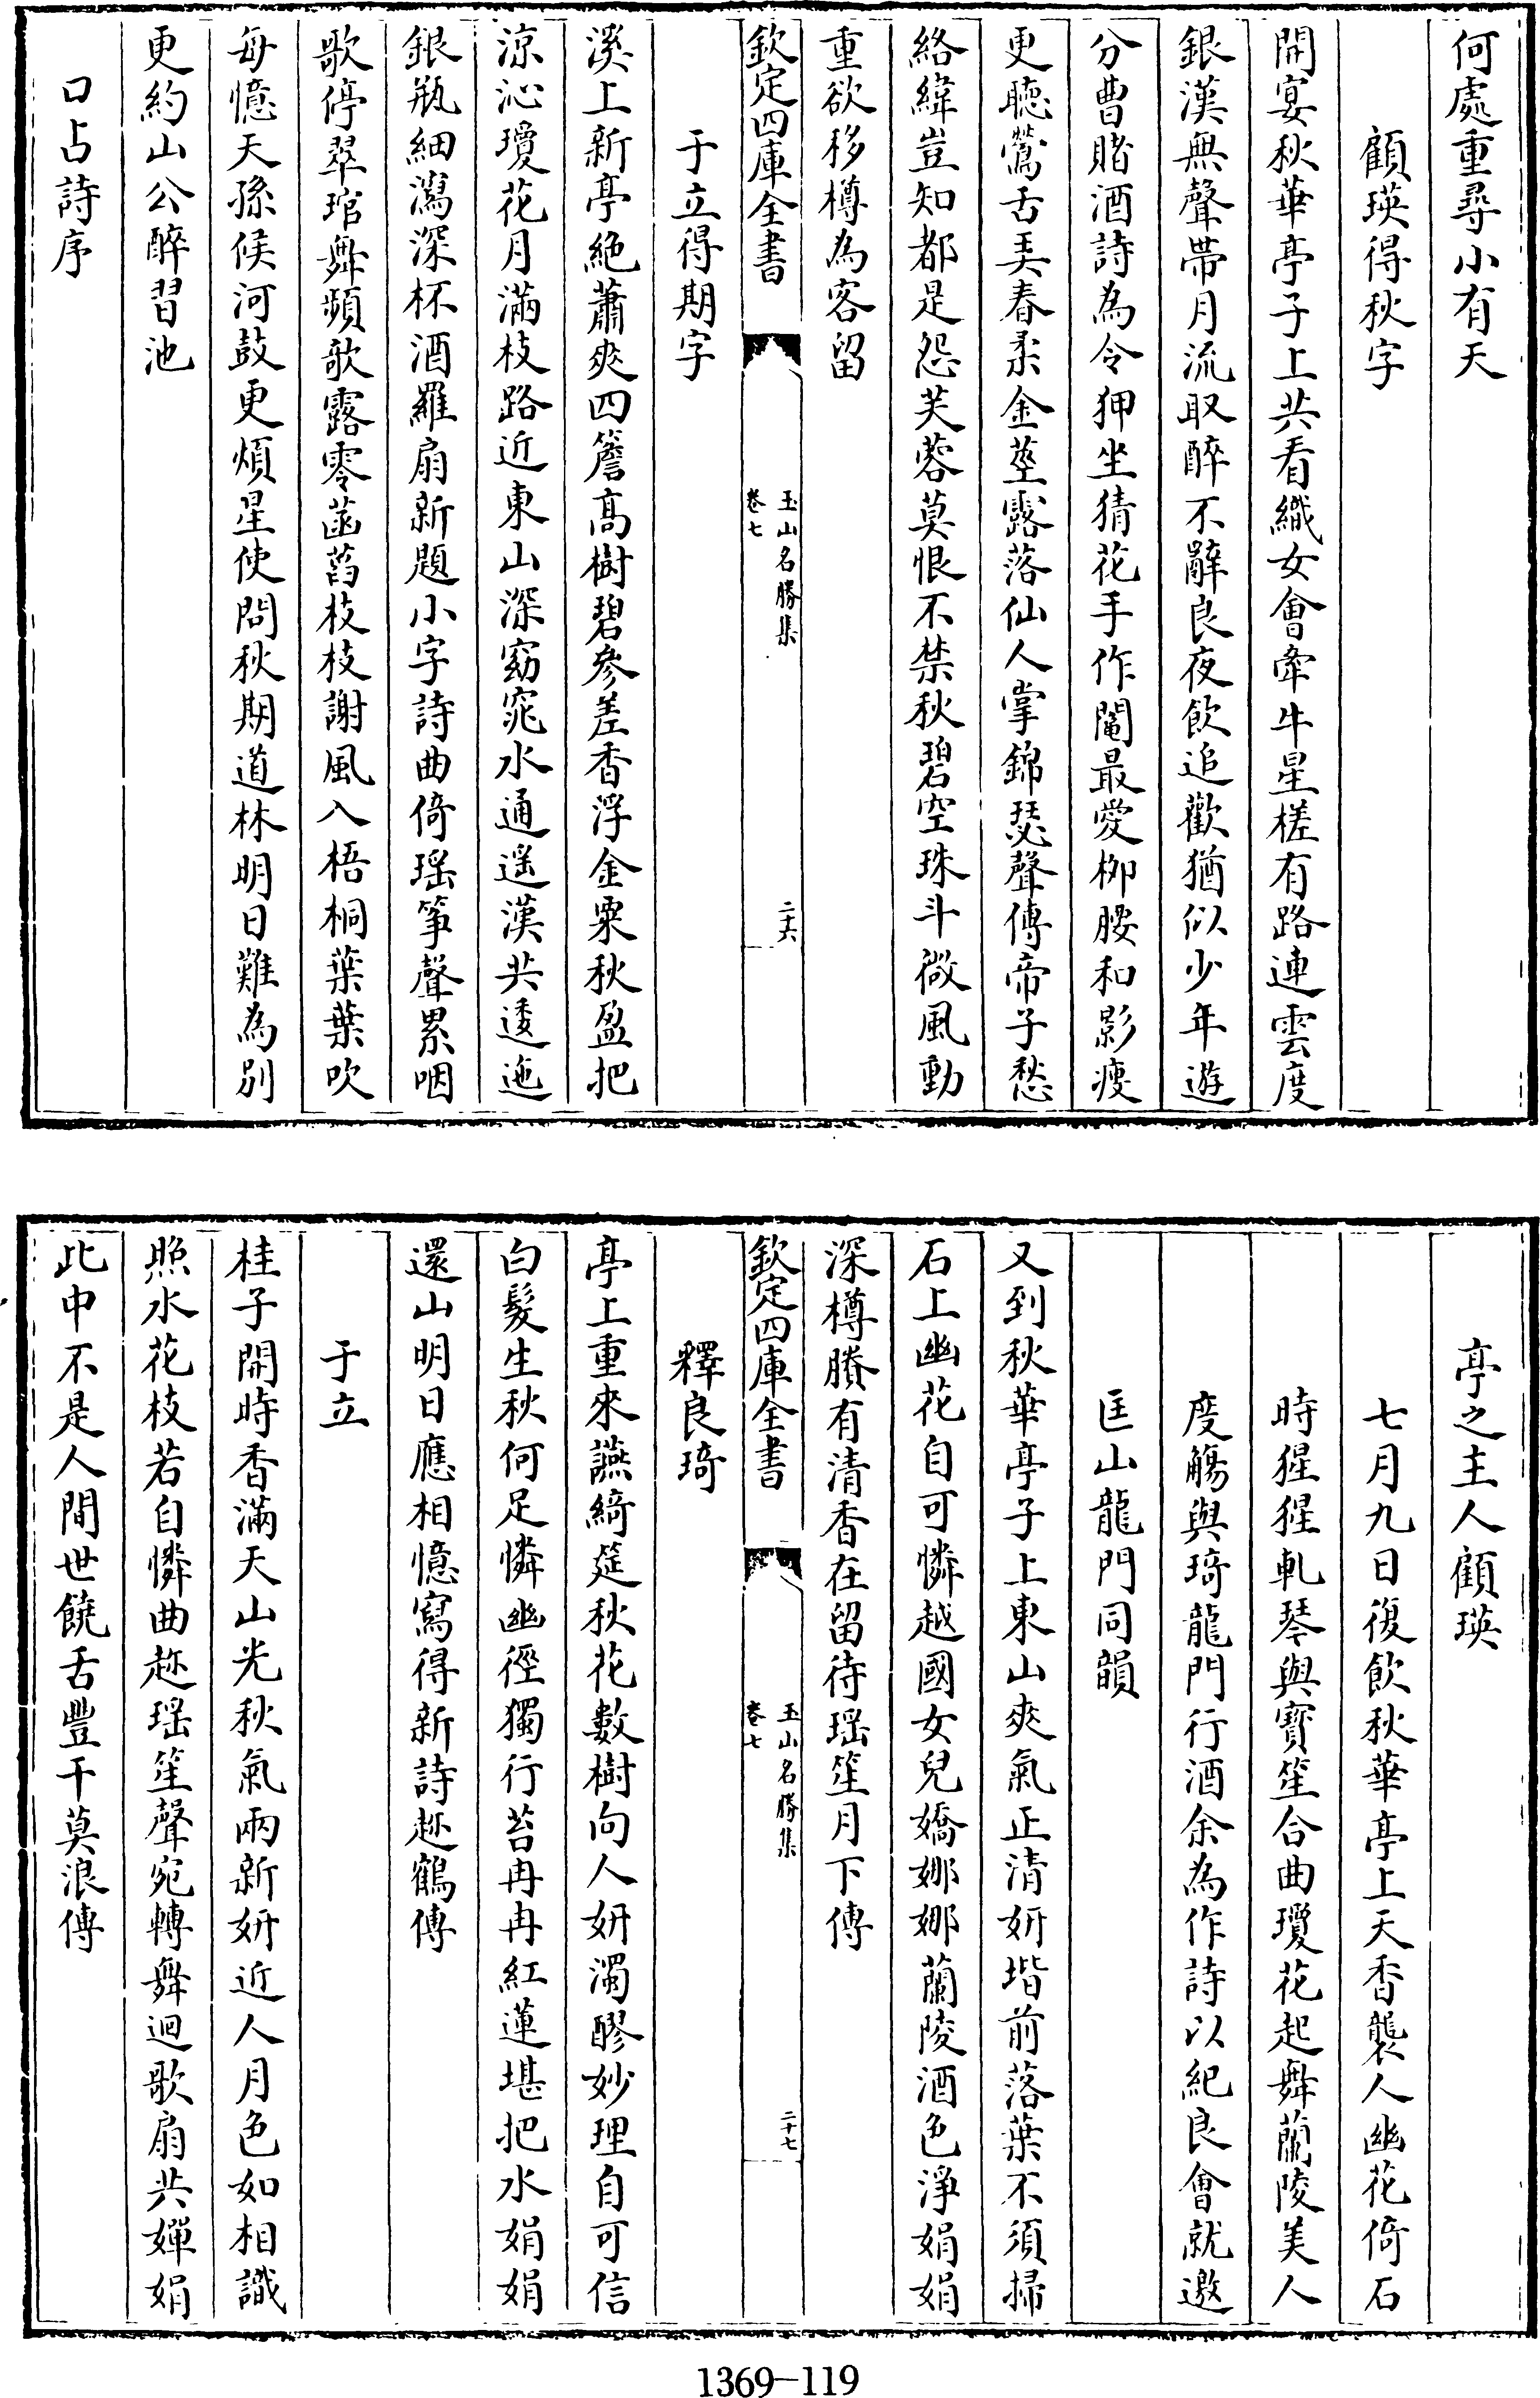 何處重尋小有天
顧瑛得秋字
開宴秋華亭子上共看織女會牽牛星槎有路連雲度
銀漢無聲帶月流取醉不辭良夜飲追歡猶似少年遊
分曹賭酒詩為令狎坐猜花手作鬮最愛柳腰和影瘦
更聽鶯舌弄春柔金莖露落仙人掌錦瑟聲傳帝子愁
絡緯豈知都是怨芙蓉莫恨不禁秋碧空珠斗微風動
重欲移樽為客留
欽定四庫全書
玉山名勝集
卷七
二十六
于立得期字
溪上新亭絕蕭爽四簷高樹碧參差香浮金粟秋盈把
涼沁瓊花月滿枝路近東山深窈窕水通遥漢共逶迤
銀瓶細瀉深杯酒羅扇新題小字詩曲倚瑶箏聲累咽
歌停翠琯舞頻欹露零菡萏枝枝謝風入梧桐葉葉吹
每憶天孫候河鼓更煩星使問秋期道林明日難為別
更約山公醉習池
口占詩序
亭之主人顧瑛
七月九日復飲秋華亭上天香襲人幽花倚石
時猩猩軋琴與寶笙合曲瓊花起舞蘭陵美人
度觴與琦龍門行酒余為作詩以紀良會就邀
匡山龍門同韻
又到秋華亭子上東山爽氣正清妍堦前落葉不須掃
石上幽花自可憐越國女兒嬌娜娜蘭陵酒色淨娟娟
深樽賸有清香在留待瑶笙月下傳
欽定四庫全書
玉山名勝集
卷七
二十七
釋良琦
亭上重來讌綺筵秋花數樹向人妍濁醪妙理自可信
白髮生秋何足憐幽徑獨行苔冉冉紅蓮堪把水娟娟
還山明日應相憶寫得新詩趂鶴傳
于立
桂子開時香滿天山光秋氣兩新妍近人月色如相識
照水花枝若自憐曲趂瑶笙聲宛轉舞迴歌扇共嬋娟
此中不是人間世饒舌豐干莫浪傳
1369-119